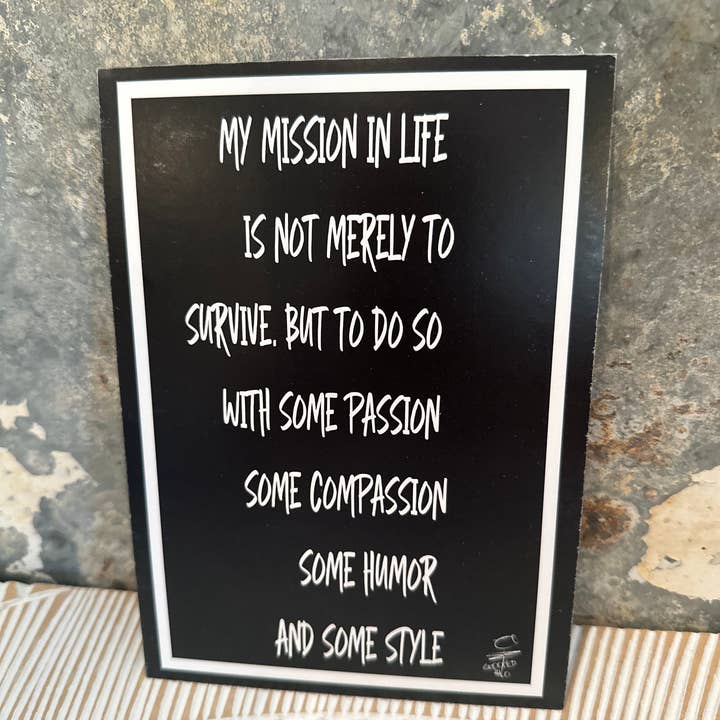 MY MISSION IN LIFE
IS NOT MERELY TO
SURVIVE. BUT TO DO SO
WITH SOME PASSION
SOME COMPASSION
SOME HUMOR
AND SOME STYLE
CROOKED
HALO